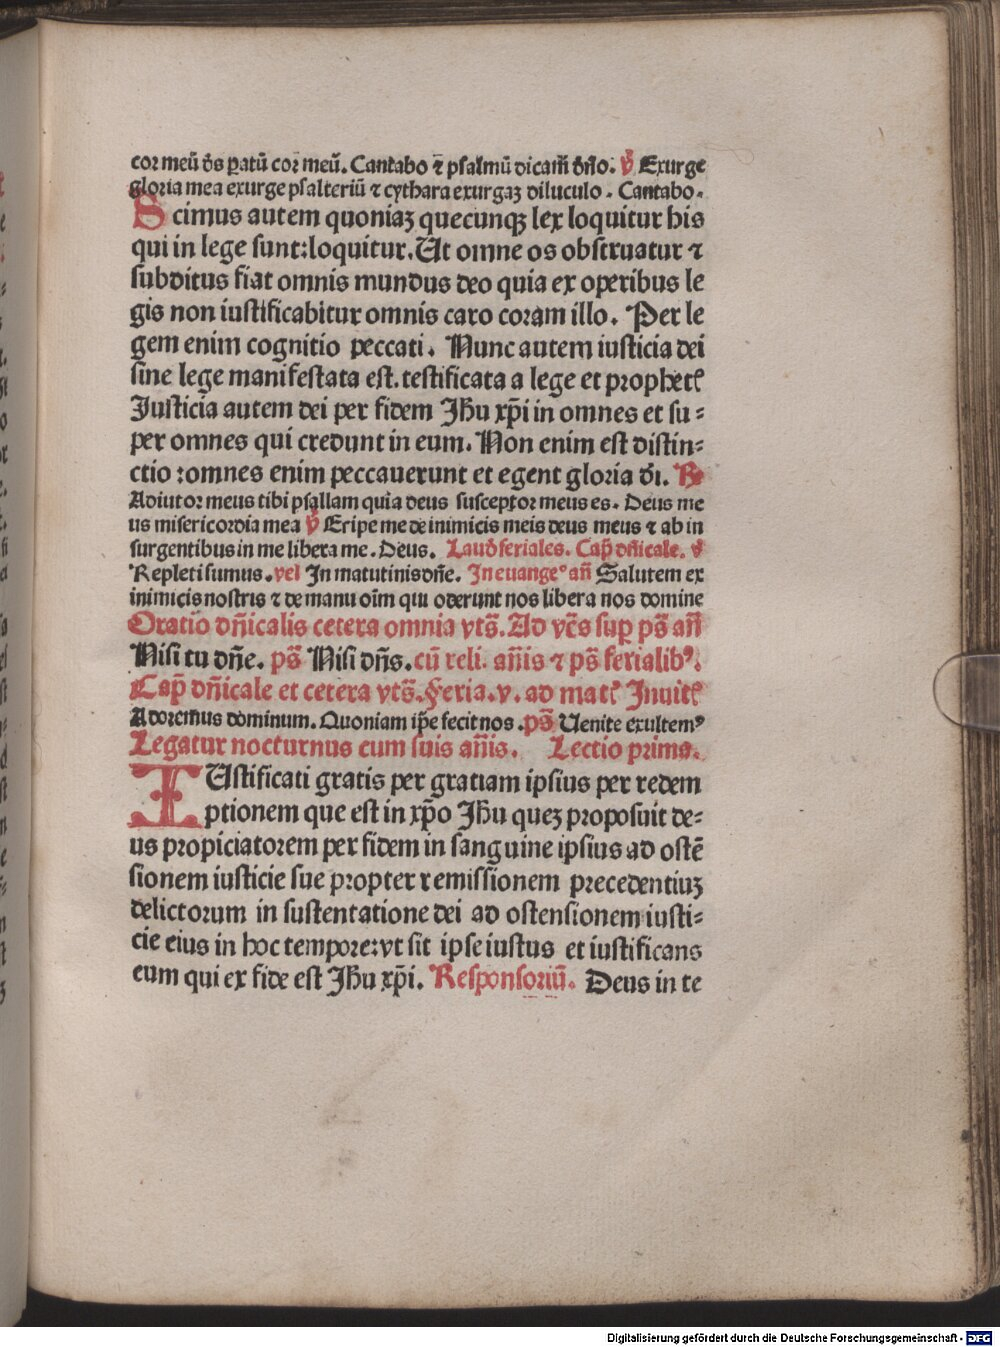 cor meū ds̄ paratū cor meū. Cantabo ⁊ psalmū dicam̄ dn̄o. ℣ Exurge
gloria mea exurge psalteriū ⁊ cythara exurgaꝫ diluculo. Cantabo.
Scimus autem quoniaꝫ quecunqꝫ lex loquitur his
qui in lege sunt:loquitur. Ut omne os obstruatur ⁊
subditus fiat omnis mundus deo quia ex operibus le
gis non iustificabitur omnis caro coram illo. Per le
gem enim cognitio peccati. Nunc autem iusticia dei
sine lege manifestata est. testificata a lege et prophetꝭ
Iusticia autem dei per fidem Jhu xp̄i in omnes et su⸗
per omnes qui credunt in eum. Non enim est distin⸗
ctio:omnes enim peccauerunt et egent gloria di̅. ℟
Adiutor meus tibi psallam quia deus susceptor meus es. Deus me
us misericordia mea ℣ Eripe me de inimicis meis deus meus ⁊ ab in
surgentibus in me libera me. Deus. Laud̄ feriales. Cap̄ dn̄icale. ℣
Repleti sumus. vel In matutinis dn̄e. In euangeꝰ an̄ Salutem ex
inimicis nostris ⁊ de manu oīm qui oderunt nos libera nos domine
Oratio dn̄icalis cetera omnia vts̄. Ad ves̄ sup̄ ps̄ an̄
Nisi tu dn̄e. ps̄ Nisi dn̄s. cū reli. an̄is ⁊ ps̄ ferialibꝰ.
Cap̄ dn̄icale et cetera vts̄. Feria. v. ad matꝭ Inuitꝭ
Adoremus dominum. Quoniam ip̄e fecit nos. ps̄ Uenite exultemꝰ
Legatur nocturnus cum suis an̄is. Lectio prima.
IUstificati gratis per gratiam ipsius per redem
ptionem que est in xp̄o Jhu queꝫ proposuit de⸗
us propiciatorem per fidem in sanguine ipsius ad ostē
sionem iusticie sue propter remissionem precedentiuꝫ
delictorum in sustentatione dei ad ostensionem iusti⸗
cie eius in hoc tempore:vt sit ipse iustus et iustificans
eum qui ex fide est Jhu xp̄i. Responsoriū. Deus in te
Digitalisierung gefördert durch die Deutsche Forschungsgemeinschaft - DFG